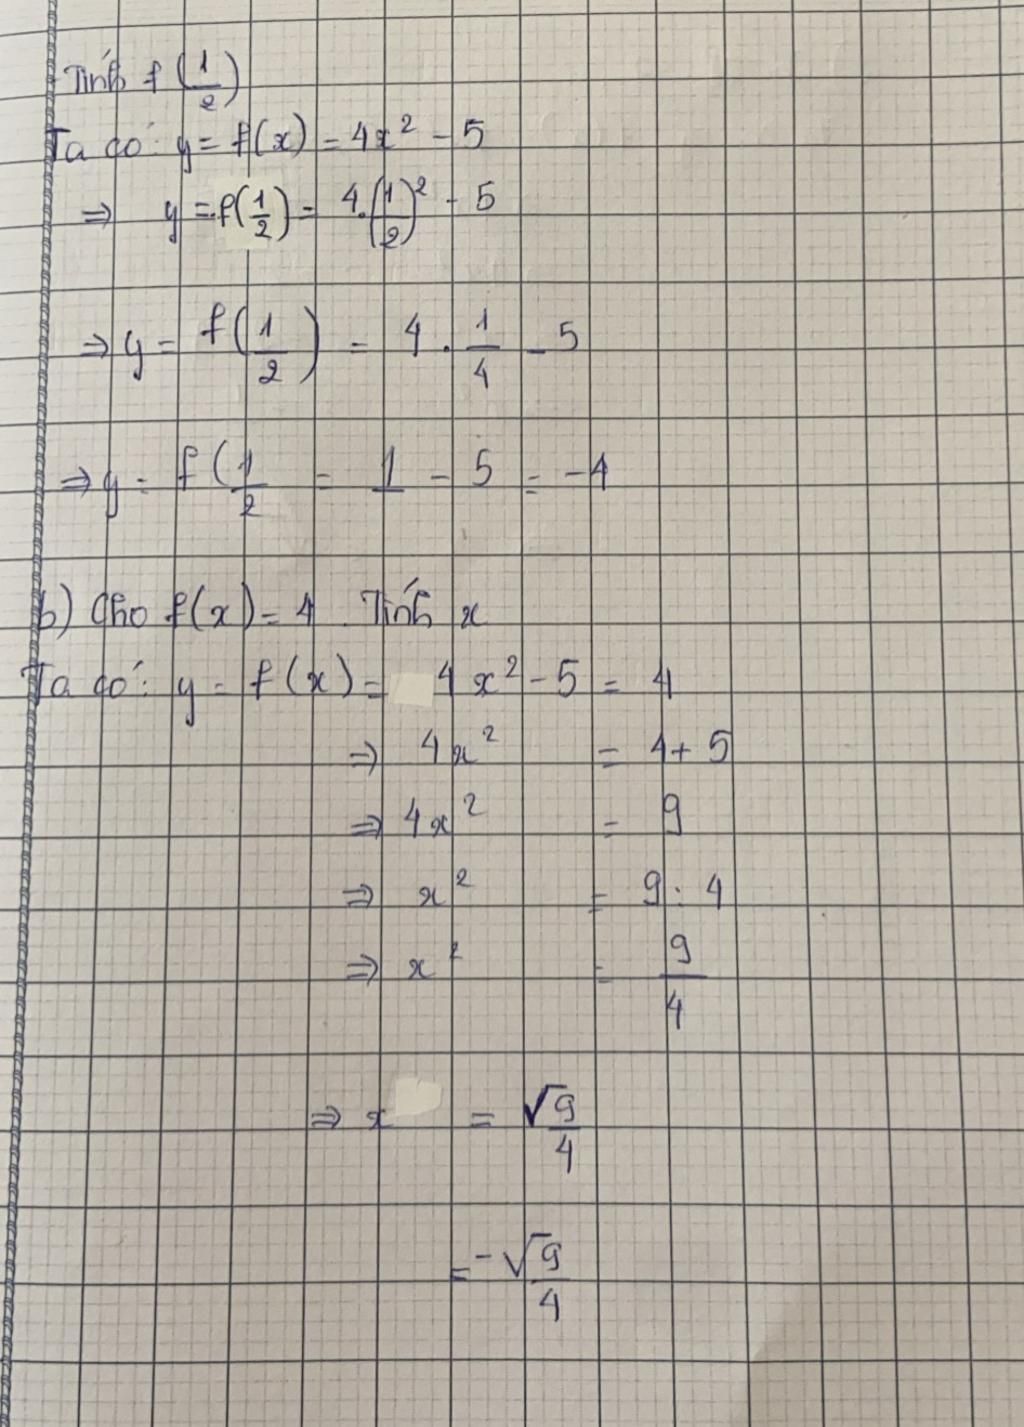 Tính f(1/2)
Ta có: y = f(x) = 4x² - 5
⇒ y = f(1/2) = 4.(1/2)² - 5
⇒ y = f(1/2) = 4 . 1/4 - 5
⇒ y = f(1/2 = 1 - 5 = -4
b) Cho f(x) = 4 Tính x
Ta có: y = f(x) = 4x² - 5 = 4
⇒ 4x² = 4 + 5
⇒ 4x² = 9
⇒ x² = 9 : 4
⇒ x² = 9/4
⇒ x = √9/4
= -√9/4